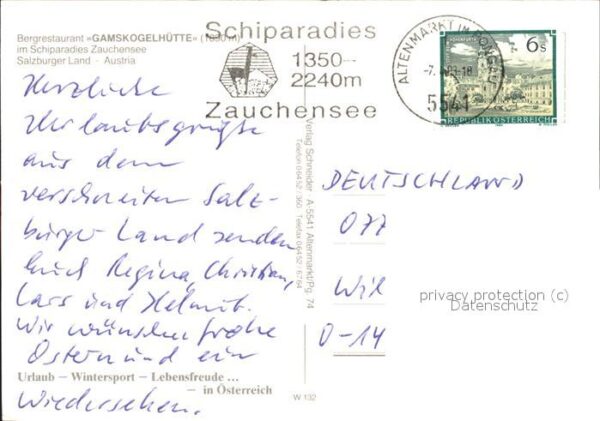 Bergrestaurant »GAMSKOGELHÜTTE« (1850 m)
im Schiparadies Zauchensee
Salzburger Land - Austria
Schiparadies
1350-
2240m
Zauchensee
ALTENMARKT IM PONGAU
5541
6s
REPUBLIK ÖSTERREICH
Herzliche
Urlaubsgrüße
aus dem
verschneiten Salz-
burger Land senden
Euch Regina, Christian,
Lars und Helmut.
Wir wünschen frohe
Ostern und ein
Wiedersehen.
Urlaub – Wintersport – Lebensfreude ...
– in Österreich
Verlag Schneider · A-5541 Altenmarkt/Pg. 74
Telefon 06452 / 360, Telefax 06452 / 6764
W 132
DEUTSCHLAND
Wil
O-14
privacy protection (c)
Datenschutz